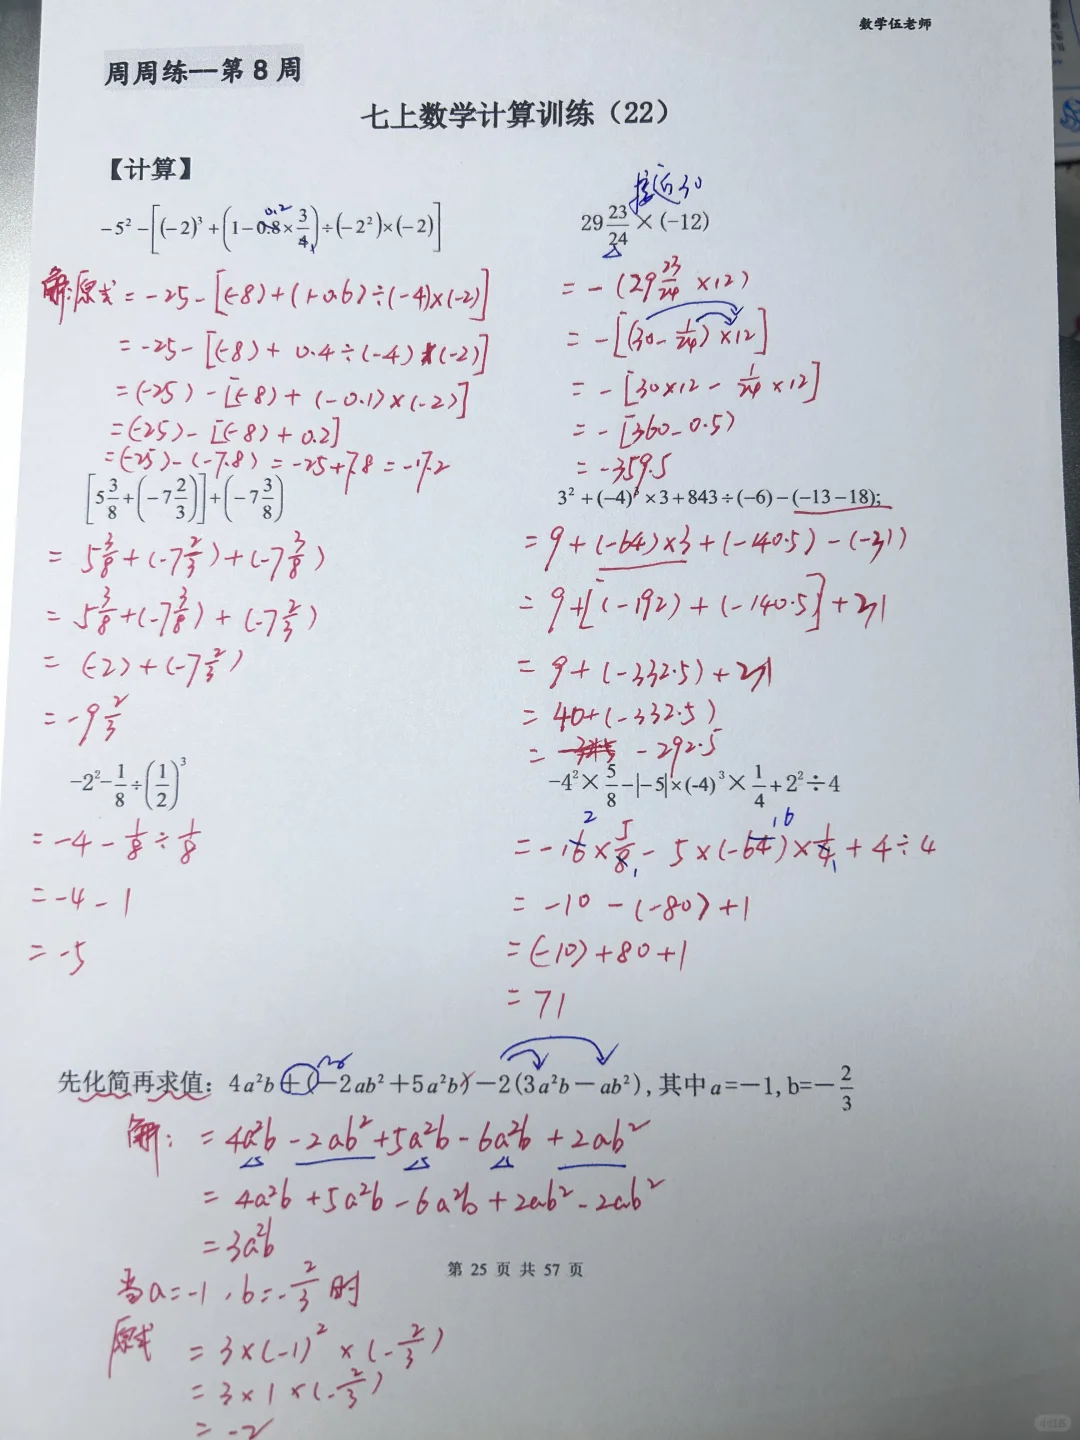 数学伍老师
周周练—第 8 周
七上数学计算训练（22）
【计算】
-5²-[(-2)³+(1-0.8×3/4)÷(-2²)×(-2)]
0.2
解:原式=-25-[(-8)+(1-0.6)÷(-4)×(-2)]
=-25-[(-8)+0.4÷(-4)×(-2)]
=(-25)-[(-8)+(-0.1)×(-2)]
=(-25)-[(-8)+0.2]
=(-25)-(-7.8)=-25+7.8=-17.2
接近30
29 23/24×(-12)
=-(29 23/24×12)
=-[(30-1/24)×12]
=-[30×12-1/24×12]
=-[360-0.5)
=-359.5
[5 3/8+(-7 2/3)]+(-7 3/8)
=5 3/8+(-7 2/3)+(-7 3/8)
=5 3/8+(-7 3/8)+(-7 2/3)
=(-2)+(-7 2/3)
=-9 2/3
3²+(-4)³×3+843÷(-6)-(-13-18);
=9+(-64)×3+(-140.5)-(-31)
=9+[(-192)+(-140.5)]+31
=9+(-332.5)+31
=40+(-332.5)
=-292.5
-2²-1/8÷(1/2)³
=-4-1/8÷1/8
=-4-1
=-5
-4²×5/8-|-5|×(-4)³×1/4+2²÷4
2 16
=-16×5/8-5×(-64)×1/4+4÷4
1 1
=-10-(-80)+1
=(-10)+80+1
=71
先化简再求值: 4a²b+(-2ab²+5a²b)-2(3a²b-ab²),其中a=-1,b=-2/3
解:=4a²b-2ab²+5a²b-6a²b+2ab²
=4a²b+5a²b-6a²b+2ab²-2ab²
=3a²b
第 25 页 共 57 页
当a=-1,b=-2/3时
原式=3×(-1)²×(-2/3)
=3×1×(-2/3)
=-2